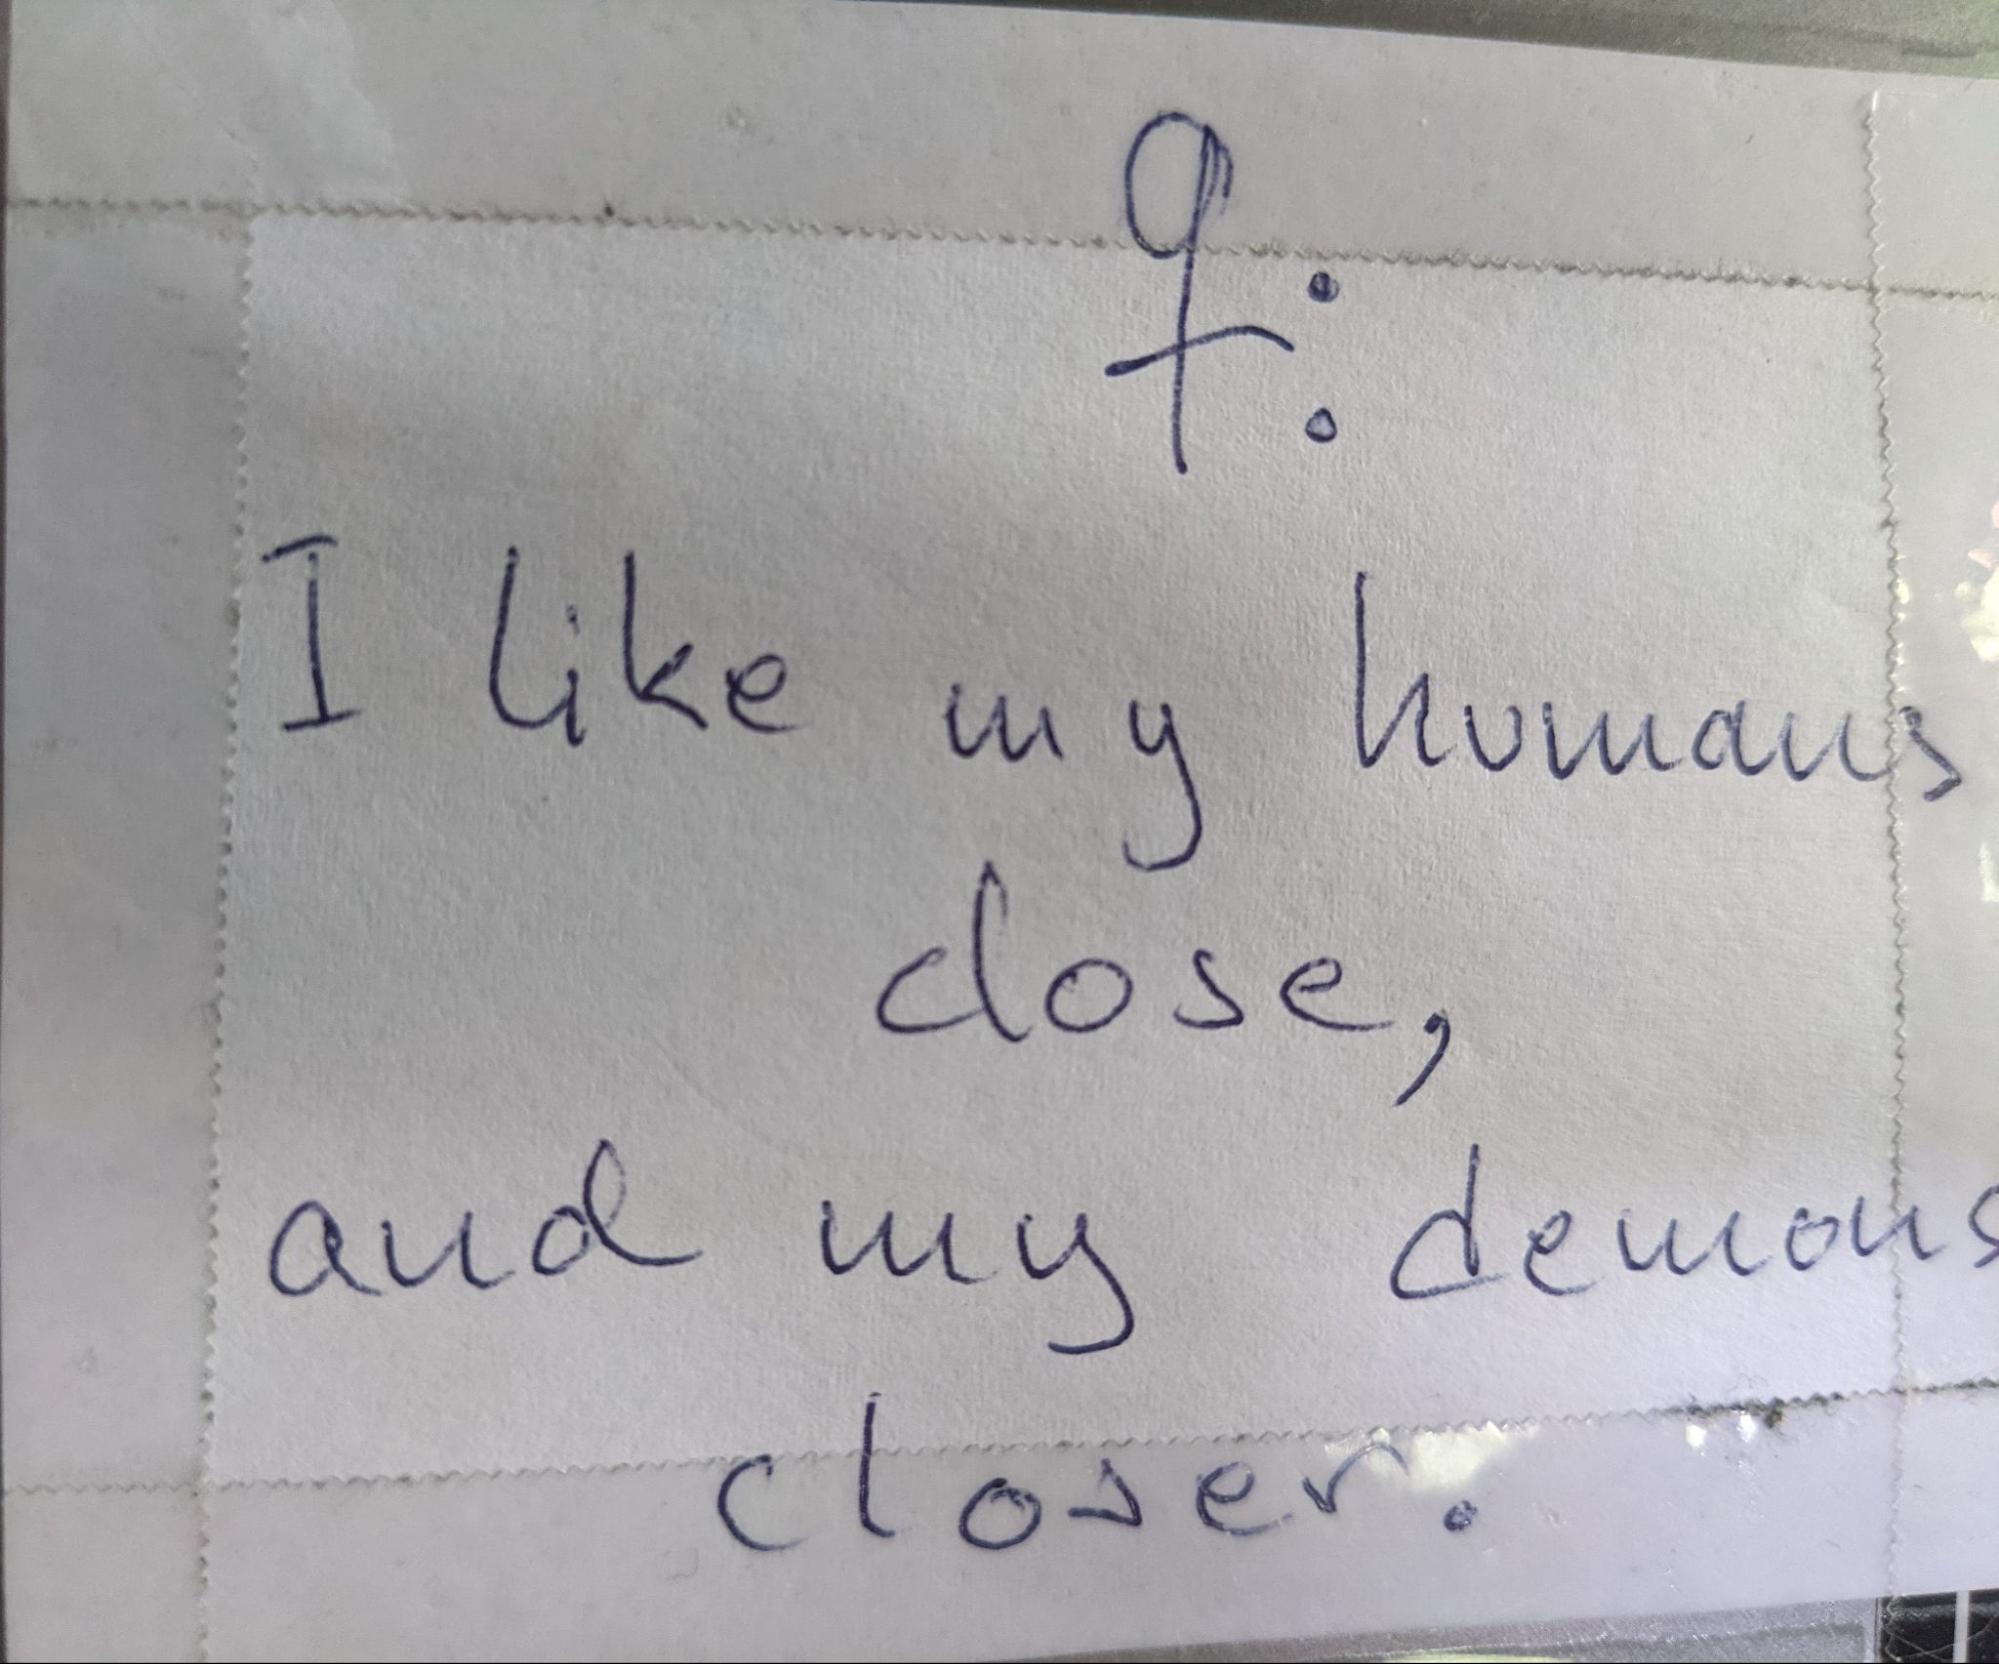 q:
I like my humans
close,
and my demons
closer.